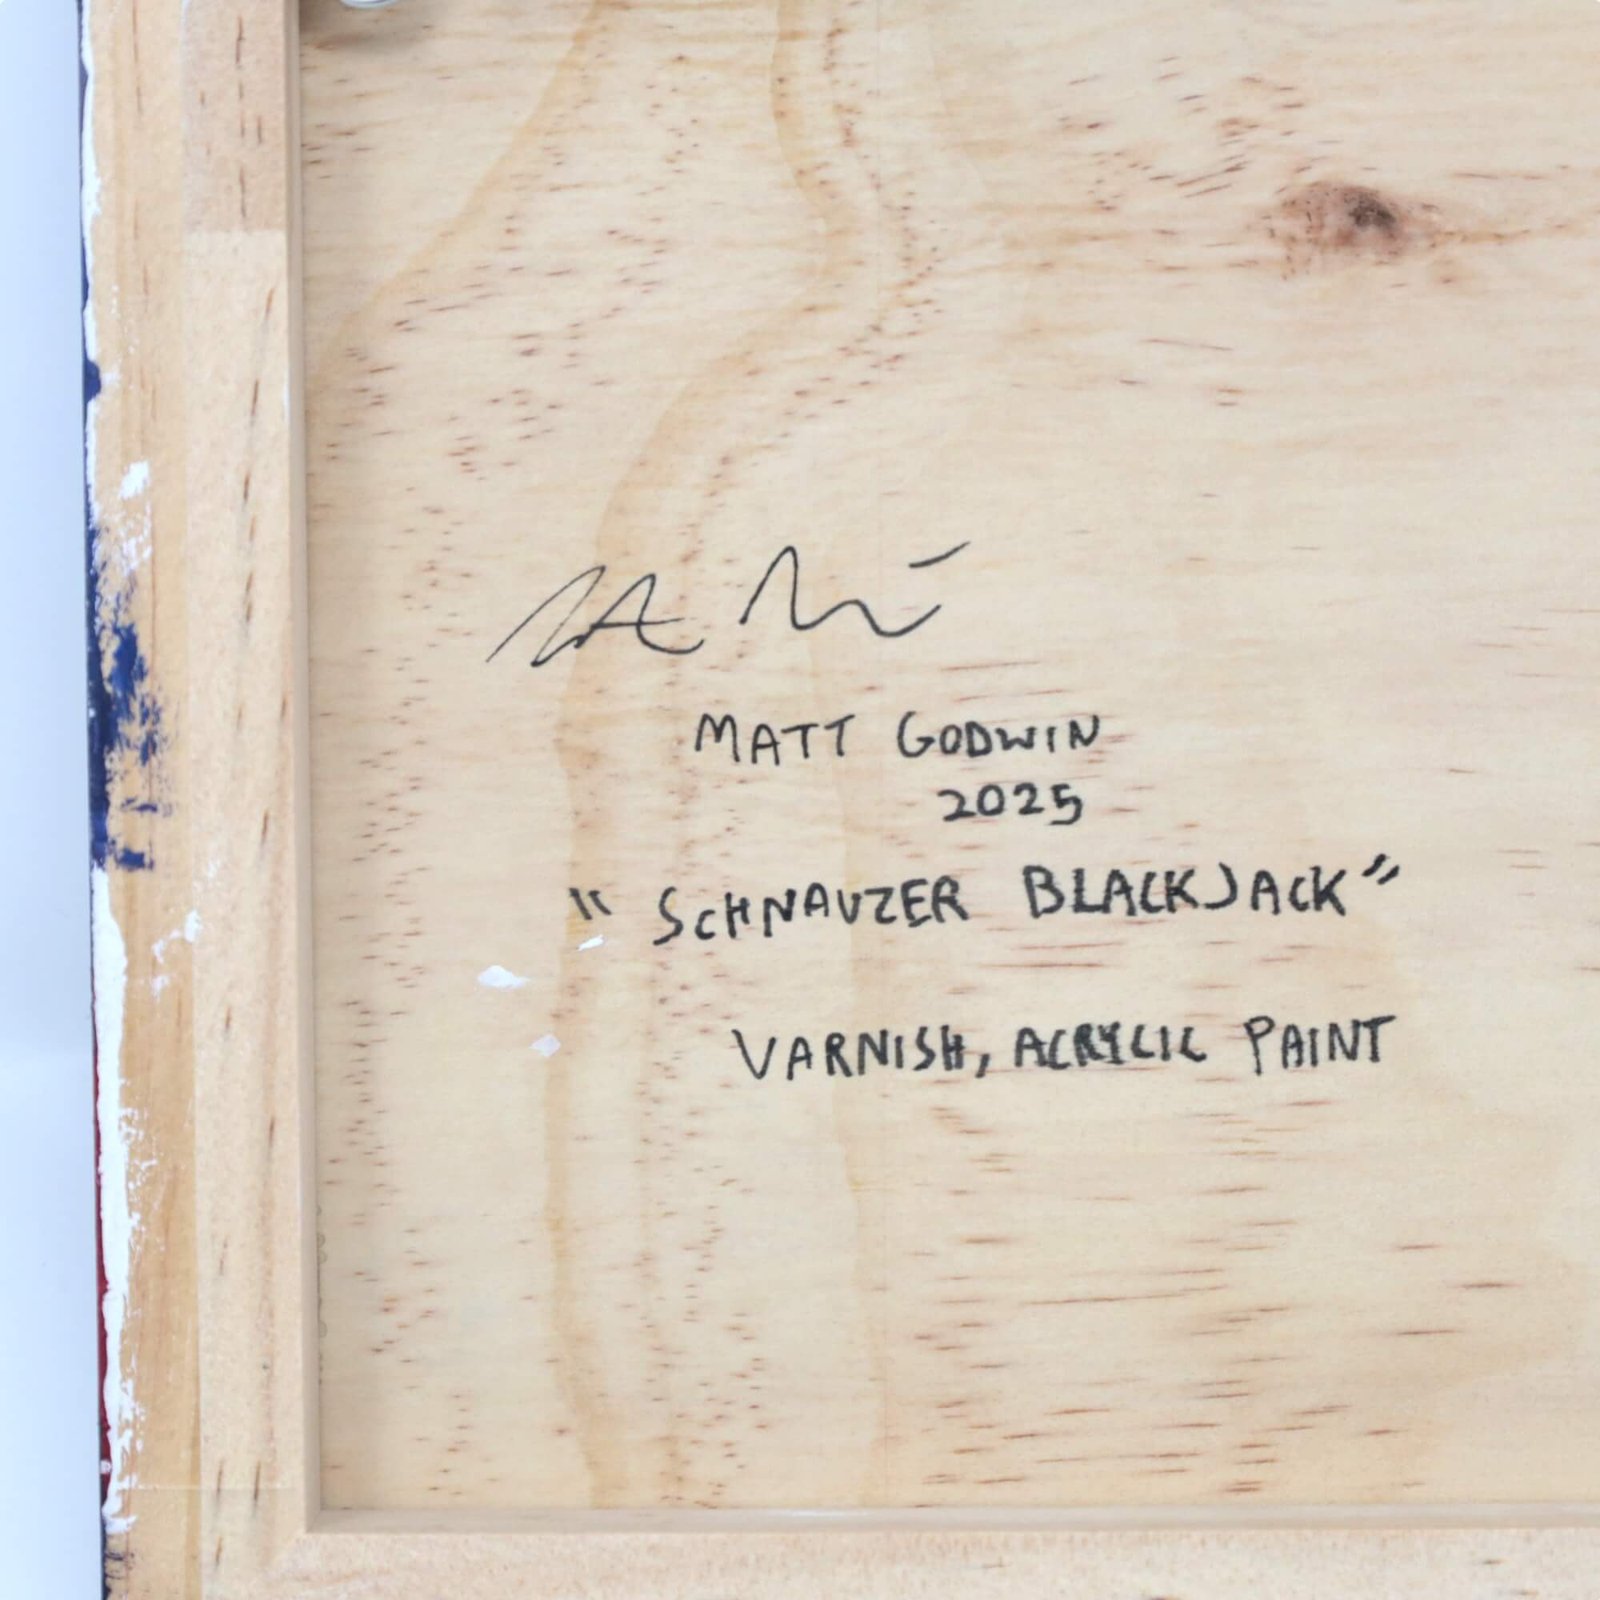 MATT GODWIN
2025
"SCHNAUZER BLACKJACK"
VARNISH, ACRYLIC PAINT